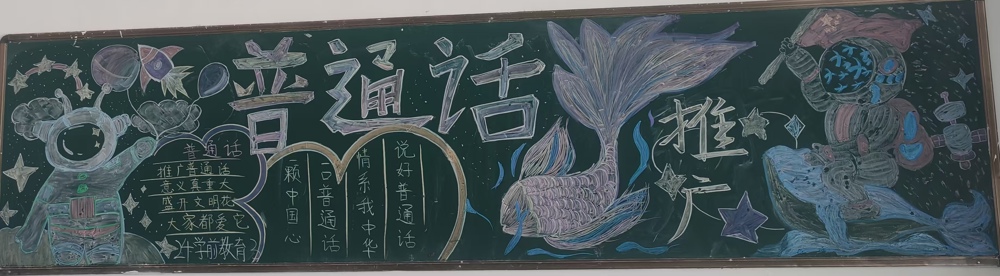 普通话
推广
普通话
推广普通话
意义真重大
盛开文明花
大家都爱它
24学前教育2
说好普通话
情系我中华
一口普通话
一颗中国心